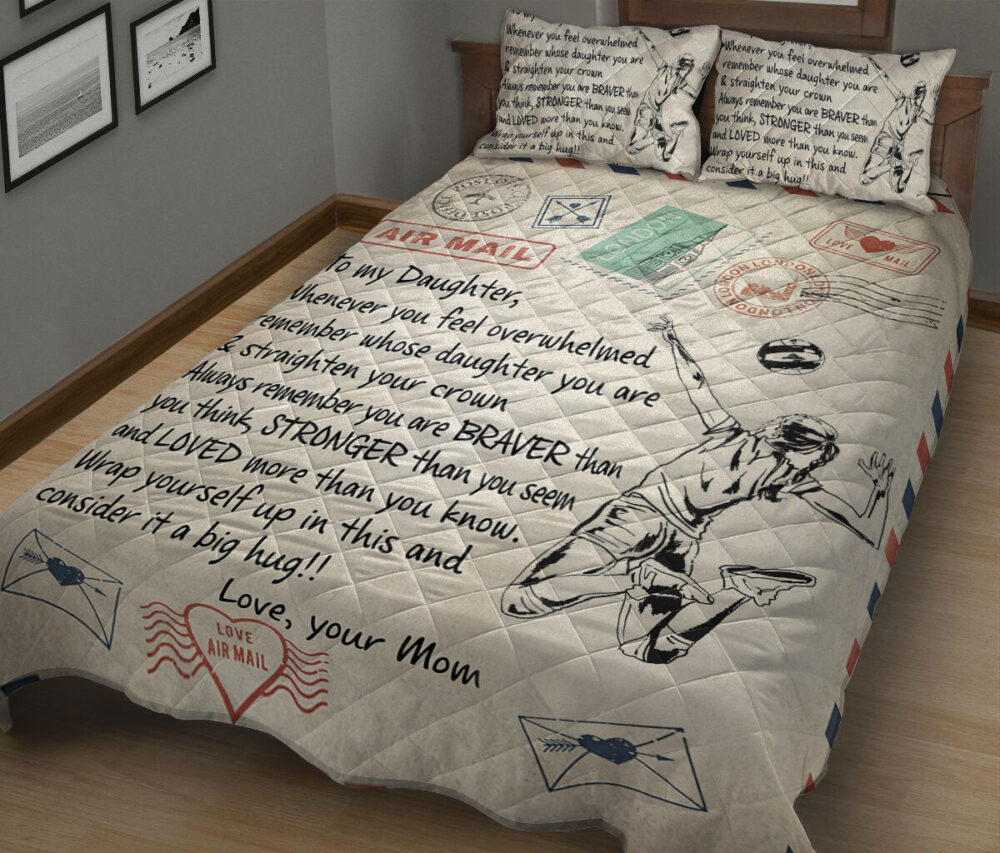 To my
Whenever you feel overwhelmed
remember whose daughter you are
& straighten your crown
Always remember you are BRAVER than
you think, STRONGER than you seem
and LOVED more than you know.
Wrap yourself up in this and
consider it a big hug!!
Whenever you feel overwhelmed
remember whose daughter you are
& straighten your crown
Always remember you are BRAVER than
you think, STRONGER than you seem
and LOVED more than you know.
Wrap yourself up in this and
consider it a big hug!!
AIR MAIL
LONDON
LOVE MAIL
LONDON LONDON LONDON
To my Daughter,
Whenever you feel overwhelmed
remember whose daughter you are
& straighten your crown
Always remember you are BRAVER than
you think, STRONGER than you seem
and LOVED more than you know.
Wrap yourself up in this and
consider it a big hug!!
Love, your Mom
LOVE
AIR MAIL